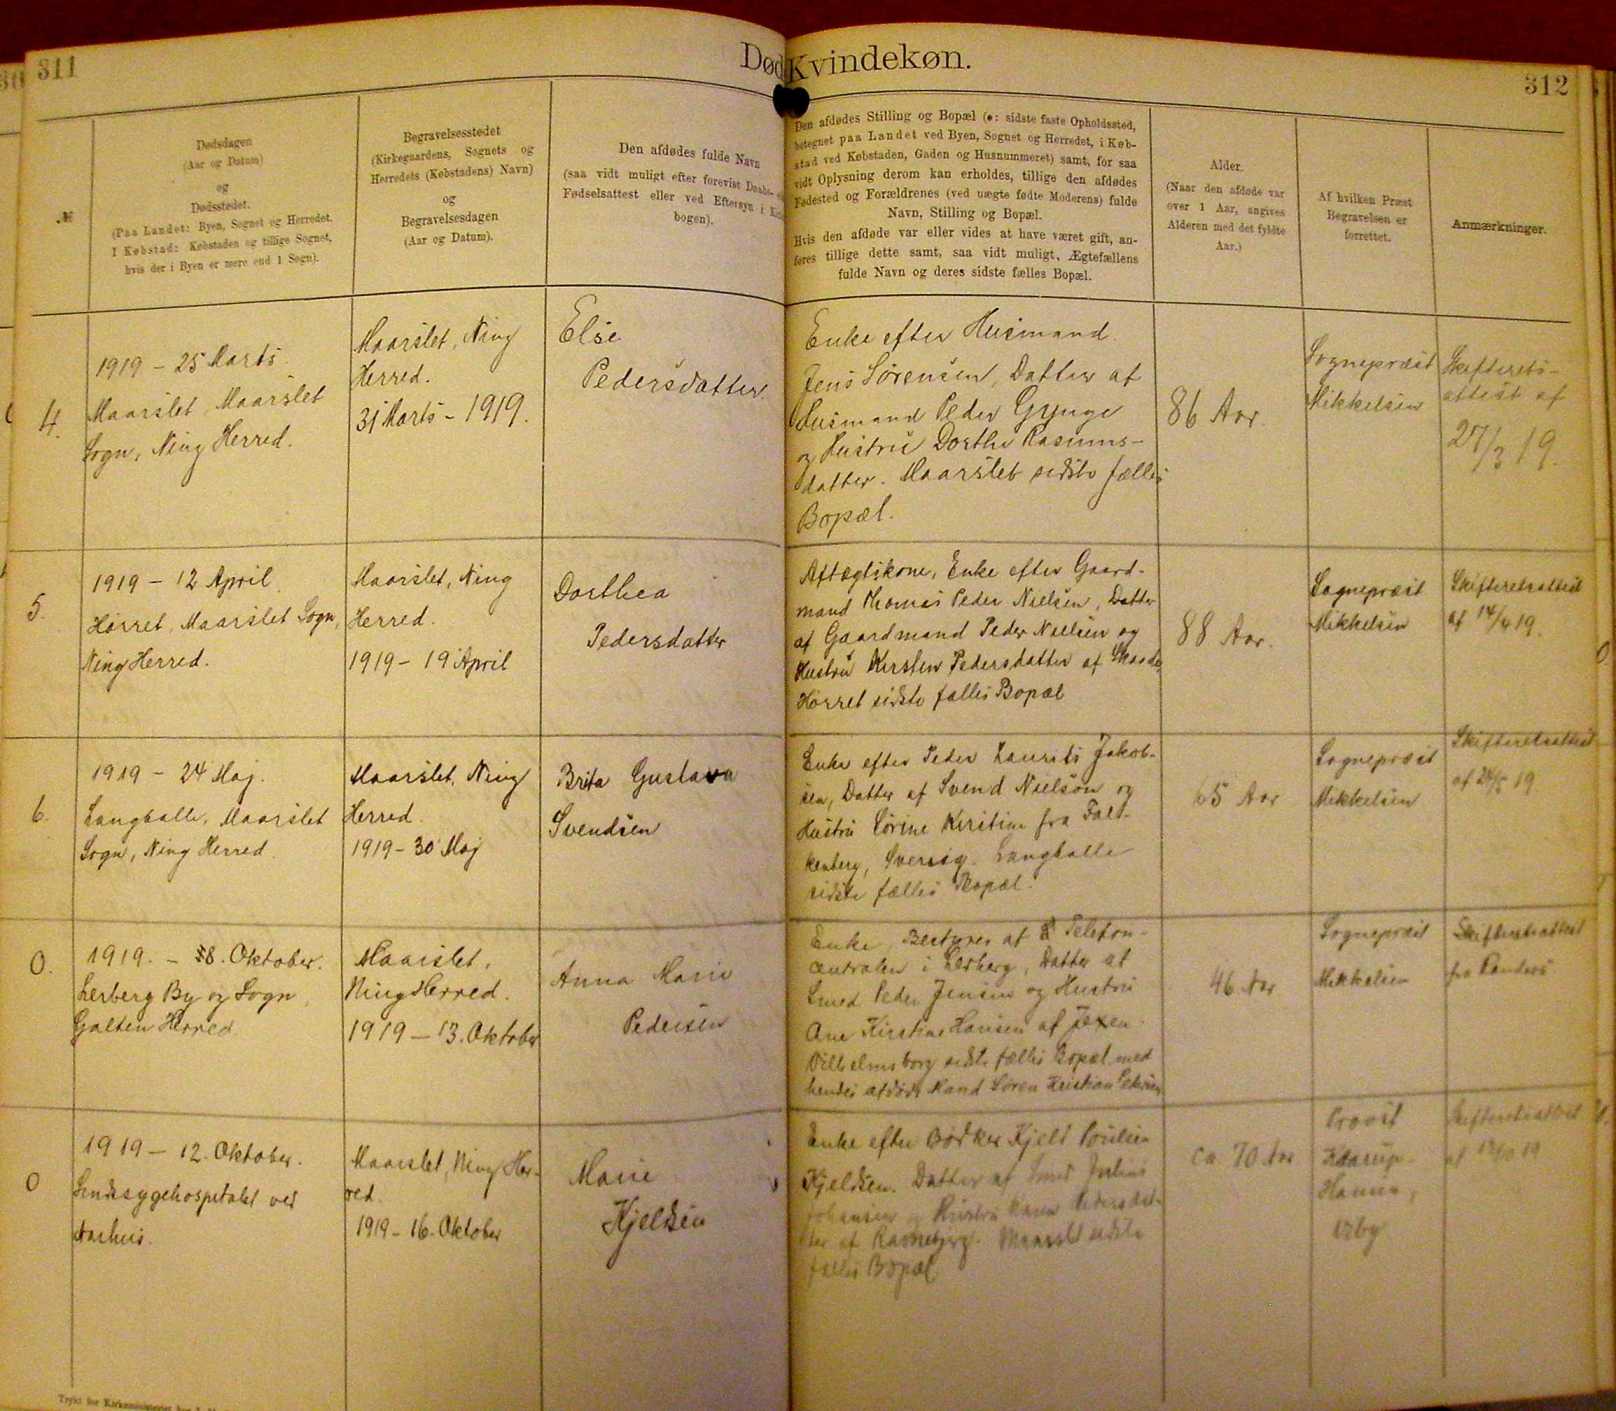 311
Død
Kvindekøn.
312
№
Dødsdagen
(Aar og Datum)
og
Dødsstedet.
(Paa Landet: Byen, Sognet og Herredet.
I Købstad: Købstaden og tillige Sognet,
hvis der i Byen er mere end 1 Sogn).
Begravelsesstedet
(Kirkegaardens, Sognets og
Herredets (Købstadens) Navn)
og
Begravelsesdagen
(Aar og Datum).
Den afdødes fulde Navn
(saa vidt muligt efter forevist Daabs-
Fødselsattest eller ved Eftersyn i
bogen).
Den afdødes Stilling og Bopæl (ɔ: sidste faste Opholdssted,
betegnet paa Landet ved Byen, Sognet og Herredet, i Køb-
stad ved Købstaden, Gaden og Husnummeret) samt, for saa
vidt Oplysning derom kan erholdes, tillige den afdødes
Fødested og Forældrenes (ved uægte fødte Moderens) fulde
Navn, Stilling og Bopæl.
Hvis den afdøde var eller vides at have været gift, an-
føres tillige dette samt, saa vidt muligt, Ægtefællens
fulde Navn og deres sidste fælles Bopæl.
Alder.
(Naar den afdøde var
over 1 Aar, angives
Alderen med det fyldte
Aar.)
Af hvilken Præst
Begravelsen er
forrettet.
Anmærkninger.
4.
1919 – 25 Marts
Maarslet, Maarslet
Sogn, Ning Herred.
Maarslet, Ning
Herred.
31 Marts – 1919.
Else
Pedersdatter
Enke efter Husmand
Jens Sørensen, Datter af
Husmand Peder Gynge
og Hustru Dorthe Rasmus-
datter. Maarslet sidste fælles
Bopæl.
86 Aar.
Sognepræst
Mikkelsen
Skifterets-
attest af
27/3 19.
5.
1919 – 12 April
Hørret, Maarslet Sogn,
Ning Herred.
Maarslet, Ning
Herred.
1919 – 19 April
Dorthea
Pedersdatter
Aftægtskone, Enke efter Gaard-
mand Thomas Peder Nielsen, Datter
af Gaardmand Peder Nielsen og
Hustru Kirsten Pedersdatter af
Hørret sidste fælles Bopæl
88 Aar.
Sognepræst
Mikkelsen
Skifteretsattest
af 14/4 19.
6.
1919 – 24 Maj.
Langballe, Maarslet
Sogn, Ning Herred.
Maarslet, Ning
Herred.
1919 – 30 Maj
Brita Gustava
Svendsen
Enke efter Peder Laurits Jakob-
sen, Datter af Svend Nielsøn og
Hustru Sørine Kirstine fra Fal-
kenberg, Sverrig. Langballe
sidste fælles Bopæl.
65 Aar
Sognepræst
Mikkelsen
Skifteretsattest
af 24/5 19
0.
1919. – 8. Oktober.
Lerberg By og Sogn,
Galten Herred
Maarslet,
Ning Herred.
1919 – 13. Oktober
Anna Marie
Pedersen
Enke, Bestyrer af Telefon-
centralen i Lerberg, Datter af
Smed Peder Jensen og Hustru
Ane Kirstine Hansen af Jexen.
Vilhelmsborg sidste fælles Bopæl med
hendes afdøde Mand Søren Kristian Pedersen
46 Aar
Sognepræst
Mikkelsen
Skifteretsattest
fra Randers
0
1919 – 12. Oktober.
Sindssygehospitalet ved
Aarhus.
Maarslet, Ning Her-
red.
1919 – 16. Oktober
Marie
Kjeldsen
Enke efter Bødker Kjeld Poulsen
Kjeldsen. Datter af Smed
Johansen og Hustru Karen Pedersdat-
ter af Ravnebjerg. Maarslet sidste
fælles Bopæl
ca. 70 Aar
Provst
Hansen,
Viby
Skifteretsattest